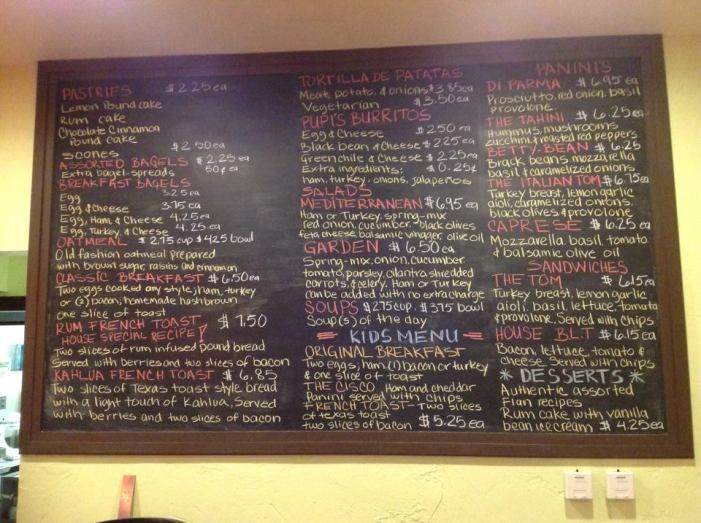 PASTRIES $2.25 ea
Lemon Pound cake
Rum cake
Chocolate Cinnamon
Pound cake
Scones $2.50 ea
ASSORTED BAGELS $2.25 ea
Extra bagel-spreads 50¢ ea
BREAKFAST BAGELS
Egg 3.25 ea
Egg & Cheese 3.75 ea
Egg, Ham, & Cheese 4.25 ea
Egg, Turkey, & Cheese 4.25 ea
OATMEAL $2.75 cup $4.25 bowl
Old fashion oatmeal prepared
with brown sugar, raisins and cinnamon
CLASSIC BREAKFAST $6.50 ea
Two eggs cooked any style; ham, turkey
or (2) bacon, homemade hashbrown
one slice of toast
RUM FRENCH TOAST $7.50
HOUSE SPECIAL RECIPE!
Two slices of rum infused pound bread
Served with berries and two slices of bacon
KAHLUA FRENCH TOAST $6.85
Two slices of Texas toast style bread
with a light touch of Kahlua. Served
with berries and two slices of bacon
TORTILLA DE PATATAS
Meat, potato, & onions $3.85 ea
Vegetarian $3.50 ea
PUPI'S BURRITOS
Egg & Cheese $2.50 ea
Black bean & Cheese $2.25 ea
Green chile & Cheese $2.25 ea
Extra ingredients: $0.25¢
ham, turkey, onions, jalapeños
SALADS
MEDITERRANEAN $6.95 ea
Ham or Turkey, spring-mix
red onion, cucumber, black olives
feta cheese, balsamic vinager, olive oil
GARDEN $6.50 ea
Spring-mix, onion, cucumber
tomato, parsley, cilantro, shredded
carrots, & celery. Ham or Turkey
can be added with no extra charge
SOUPS $2.75 cup $3.75 bowl
Soup(s) of the day
KIDS MENU
ORIGINAL BREAKFAST
Two eggs; ham (1) bacon or turkey
& one slice of toast
THE CISCO Ham and cheddar
Panini served with chips
FRENCH TOAST - Two slices
of texas toast
two slices of bacon $5.25 ea
PANINI'S
DI PARMA $6.95 ea
Prosciutto, red onion, basil
provolone
THE TAHINI $6.25 ea
Hummus, mushrooms,
zucchini, & roasted red peppers
BETTY BEAN $6.25
Black beans, mozzarella
basil, & caramelized onions
THE ITALIAN TOM $6.75 ea
Turkey breast, lemon garlic
aioli, caramelized onions,
black olives & provolone
CAPRESE $6.25 ea
Mozzarella, basil, tomato
& balsamic olive oil
SANDWICHES
THE TOM $6.15 ea
Turkey breast, lemon garlic
aioli, basil, lettuce, tomato
& provolone. Served with chips
HOUSE BL.T $6.15 ea
Bacon, lettuce, tomato &
cheese. Served with chips
DESSERTS
Authentic assorted
Flan recipes
Rum cake with vanilla
bean ice cream $4.25 ea